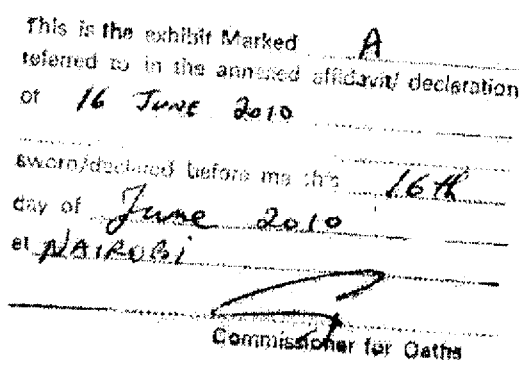 This is the exhibit Marked A
referred to in the annexed affidavit/ declaration
of 16 JUNE 2010
sworn/declared before me this 16th
day of June 2010
at NAIROBI
Commissioner for Oaths